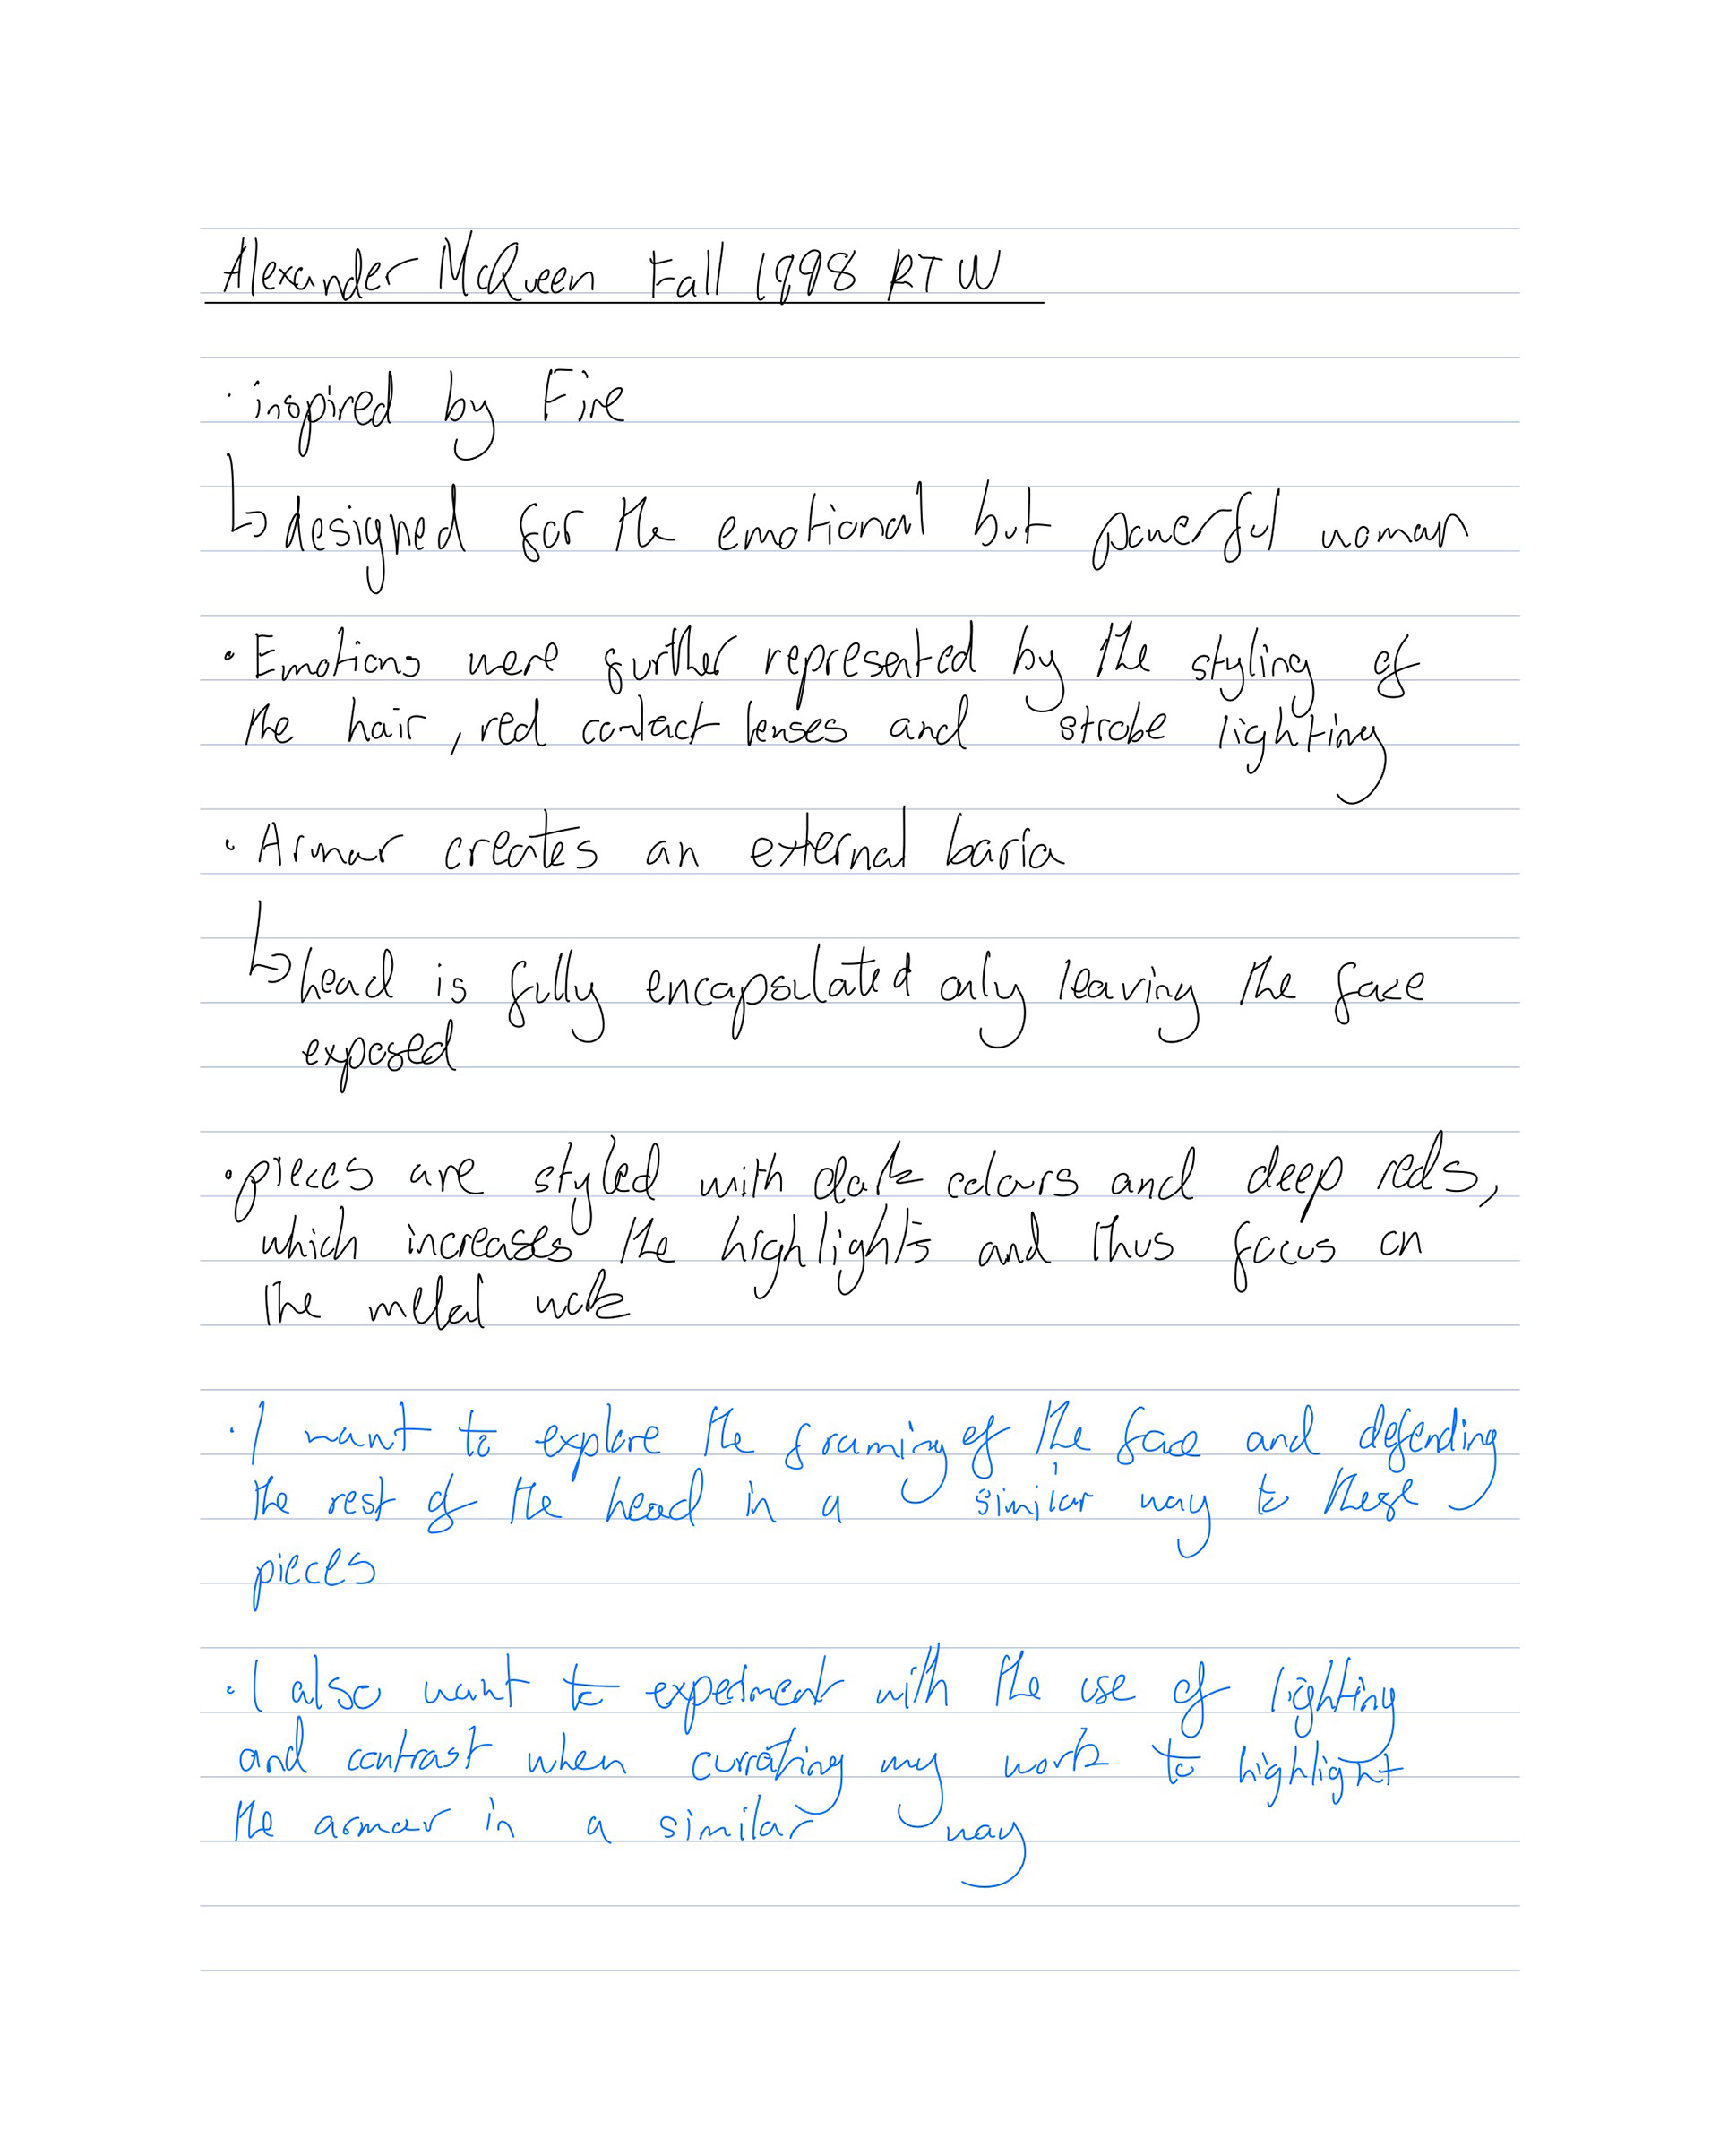 Alexander McQueen Fall 1998 RTW
· inspired by Fire
↳ designed for the emotional but powerful woman
· Emotions were further represented by the styling of
the hair, red contact lenses and strobe lighting
· Armor creates an external baria
↳ head is fully encapsulated only leaving the face
exposed
· pieces are styled with dark colours and deep reds,
which increases the highlights and thus focus on
the metal work
· I want to explore the framing of the face and defending
the rest of the head in a similar way to these
pieces
· I also want to experiment with the use of lighting
and contrast when currating my work to highlight
the armour in a similar way